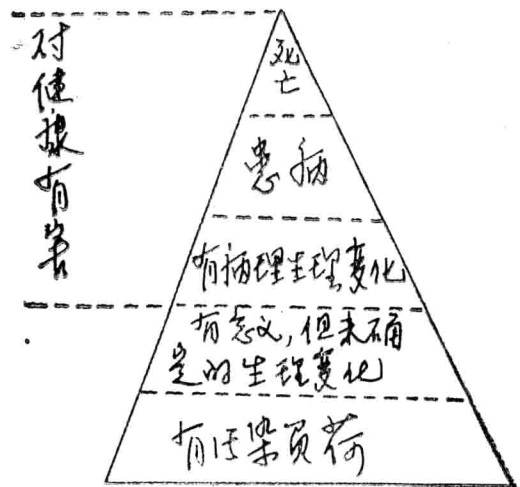 对健康有害
死亡
患病
有病理生理变化
有意义,但未确
定的生理变化
有污染负荷